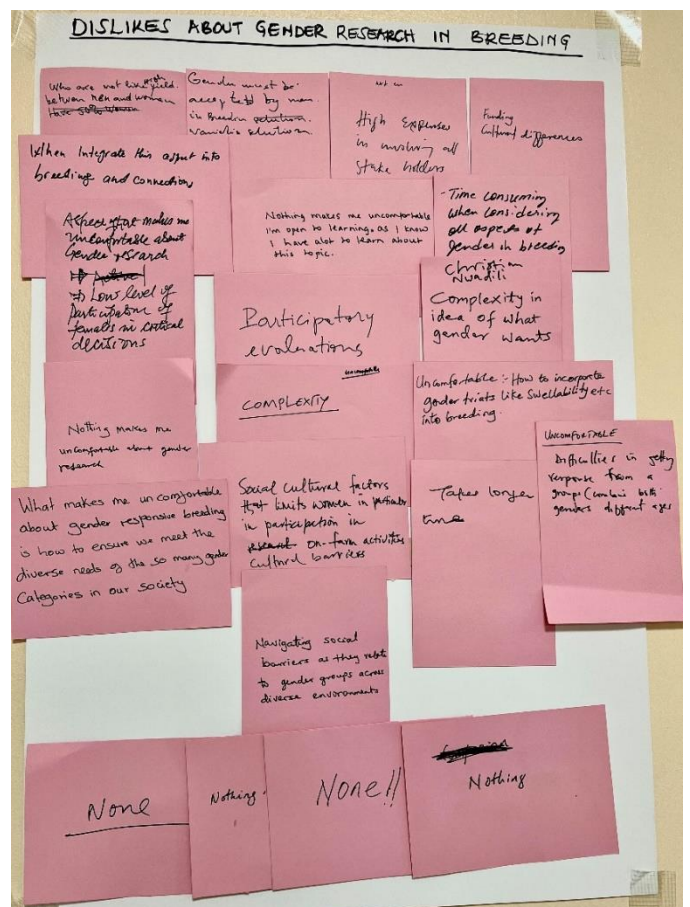 DISLIKES ABOUT GENDER RESEARCH IN BREEDING
Who are not
between MEN and women
Have 50% women
Gender must be
accepted by men
in Breeding
High expenses
in involving all
Stake holders
Funding
Cultural differences
When Integrate this aspect into
breeding and connections
Nothing makes me uncomfortable
I'm open to learning. as I know
I have alot to learn about
this topic.
- Time consuming
when considering
all aspects of
gender in breeding
Christian
Nwadili
Aspect that makes me
uncomfortable about
Gender research
⇒ Low level of
participation of
females in critical
decisions
Participatory
evaluations
Complexity in
idea of what
gender wants
Nothing makes me
uncomfortable about gender
research
COMPLEXITY
Uncomfortable :- How to incorporate
gender triats like Swellability etc
into breeding.
UNCOMFORTABLE
Difficulties in getting
response from a
group (contain both
genders different ages
What makes me uncomfortable
about gender responsive breeding
is how to ensure we meet the
diverse needs of the so many gender
Categories in our society
Social Cultural factors
that limits women in particular
in participation in
on-farm activities
cultural barriers
Takes longer
time
Navigating social
barriers as they relate
to gender groups across
diverse environments
None
Nothing
None!!
Nothing